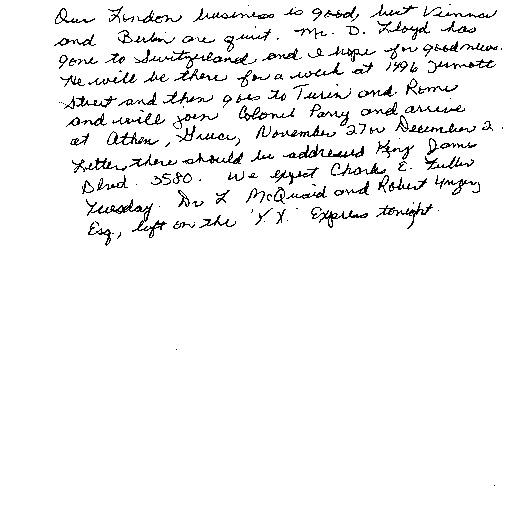 Our London business is good, but Vienna
and Berlin are quiet. Mr. D. Lloyd has
gone to Switzerland and I hope for good news.
He will be there for a week at 1496 Zermott
Street and then goes to Turin and Rome
and will join Colonel Parry and arrive
at Athens, Greece, November 27 or December 2.
Letters there should be addressed King James
Blvd. 3580. We expect Charles E. Fuller
Tuesday. Dr. L. McQuaid and Robert Unger,
Esq., left on the 'Y.X.' Express tonight.